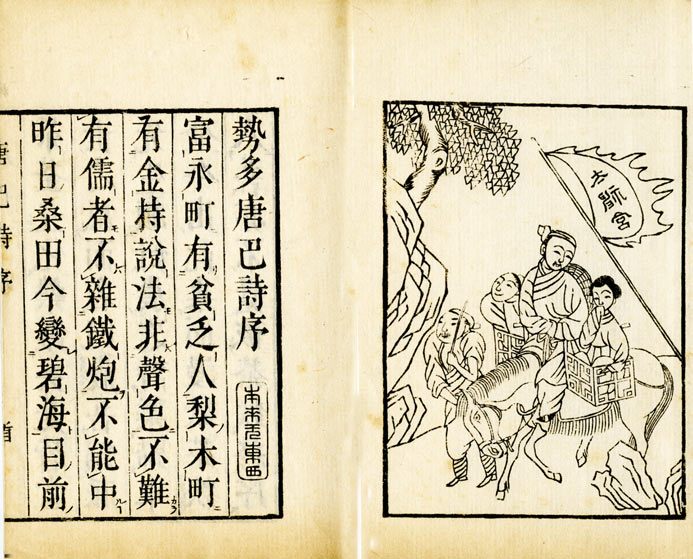 太神宮
勢多唐巴詩序
本來无東西
富永町有貧乏人梨木町
有金持說法非聲色不難
有儒者不雜鐵炮不能中
昨日桑田今變碧海目前
唐巴詩序